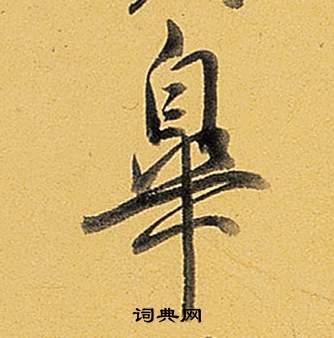 皋
词典网